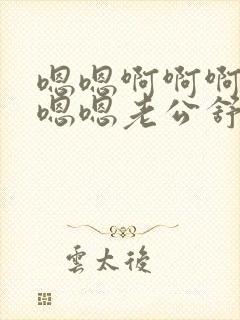 嗯嗯啊啊啊
嗯嗯老公舒
雲太後